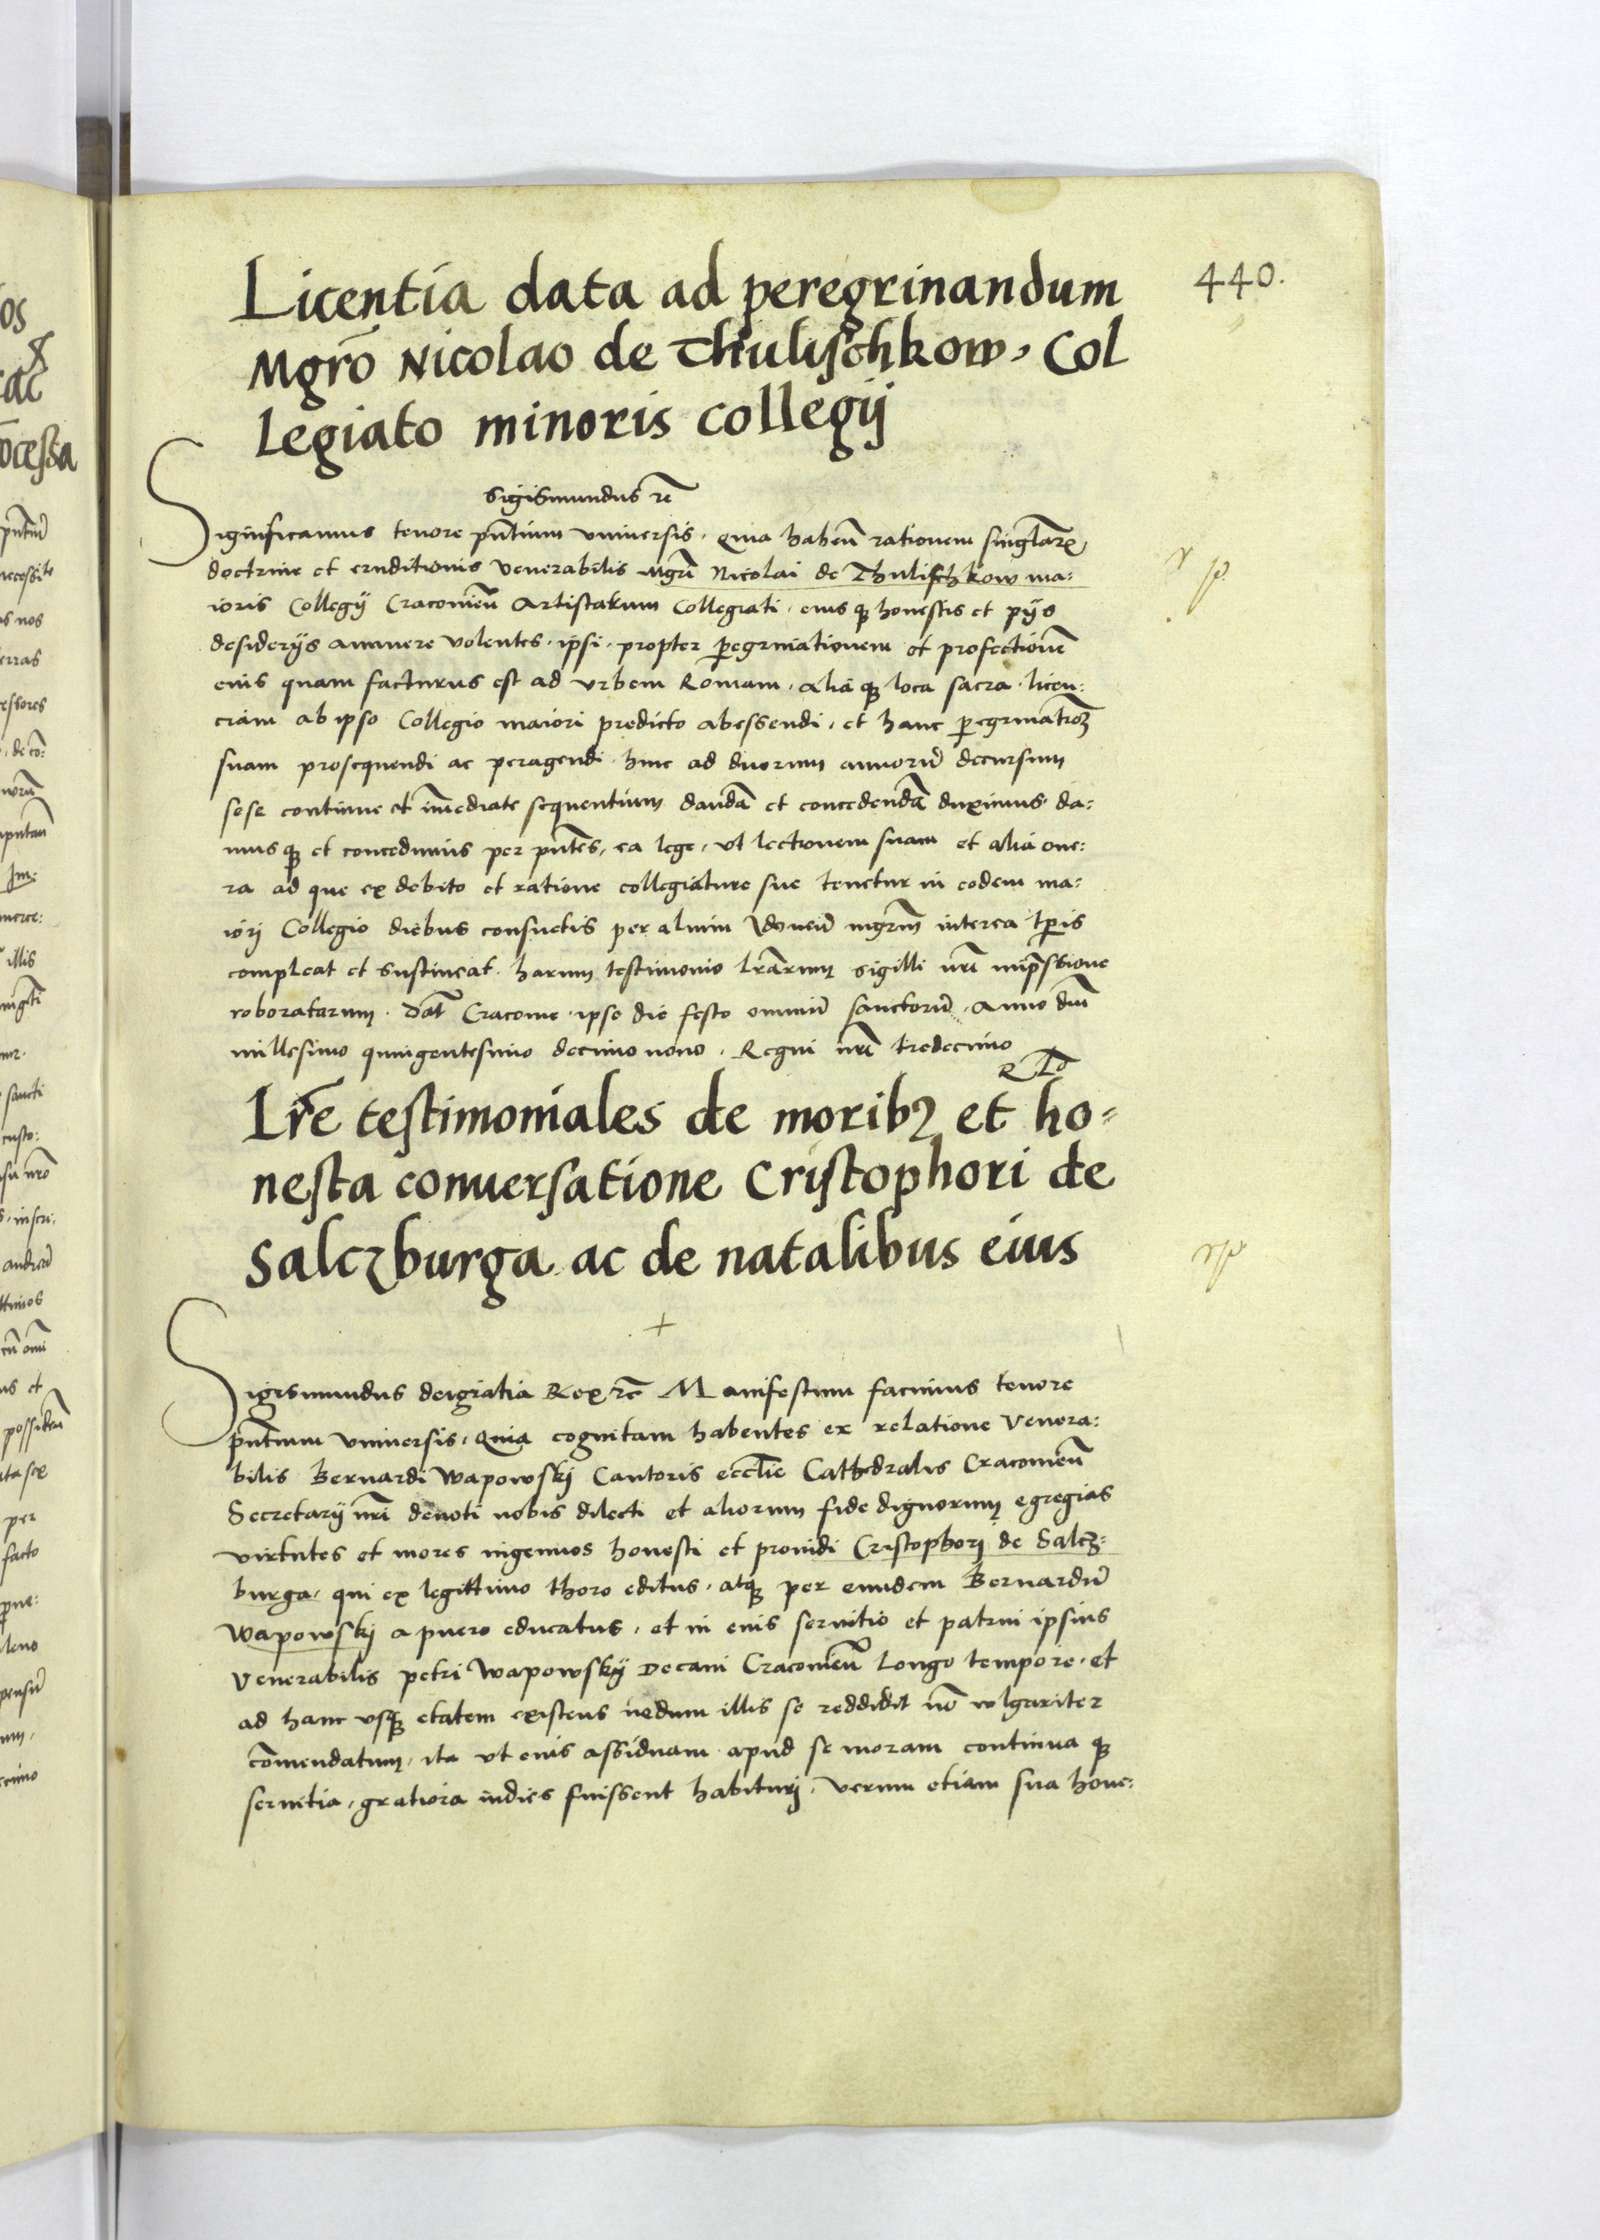 440.
Licentia data ad peregrinandum
Mgrō Nicolao de Thulischkow, Col
legiato minoris collegij
Sigismundus rē
Significamus tenore pn̄tium vniversis. Quia haben̄ rationem singlarē
doctrine et eruditionis venerabilis mgrī Nicolai de Thulischkow ma:
ioris Collegij Cracovien̄ Artistarum Collegiati. eiusqꝫ honestis et pijs
desiderijs annuere volentes. ipsi. propter peregrinationem et profectionē
eius quam facturus est ad vrbem Romam. aliaqꝫ loca sacra. licen:
ciam ab ipso Collegio maiori predicto abessendi. et hanc peregrinatioꝫ
suam prosequendi ac peragendi. hinc ad duorum annorū decursum
sese continue et īmediate sequentium dandā et concedendā duximus. da:
musqꝫ et concedimus per pn̄tes, ea lege, vt lectionem suam et alia one:
ra ad que ex debito et ratione collegiature sue tenetur in eodem ma:
iorj Collegio diebus consuetis per alium Idoneū mgrm̄ interea tꝑis
compleat et sustineat. harum testimonio lr̄arum sigilli nr̄i imp̄ssione
roboratarum. Dat̄ Cracovie. ipso die festo omniū sanctorū. Anno dnī
millesimo quingentesimo decimo nono. Regni nr̄i tredecimo
Lr̄e testimoniales de moribꝰ et ho=
nesta conuersatione Cristophori de
Salczburga ac de natalibus eius
+
Sigismundus dei gratia Rex rē Manifestum facimus tenore
pn̄tium vniversis. Quia cognitam habentes ex relatione Venera:
bilis Bernardi Wapowskj Cantoris eccl̄ie Cathedralis Cracovien̄
Secretarij nr̄i deuoti nobis dilecti et aliorum fide dignorum egregias
virtutes et mores ingenuos honesti et prouidi Cristophorj de Salcz:
burga. qui ex legittimo thoro editus. atqꝫ per eundem Bernardū
Wapowskj a puero educatus. et in eius seruitio et patrui ipsius
Venerabilis petri Wapowskij Decani Cracovien̄ longo tempore. et
ad hanc vsqꝫ etatem existens nedum illis se reddidit nō wlgariter
cōmendatum, ita vt eius assiduam apud se moram continuaqꝫ
seruitia, gratiora indies fuissent habiturj. verum etiam sua hone: